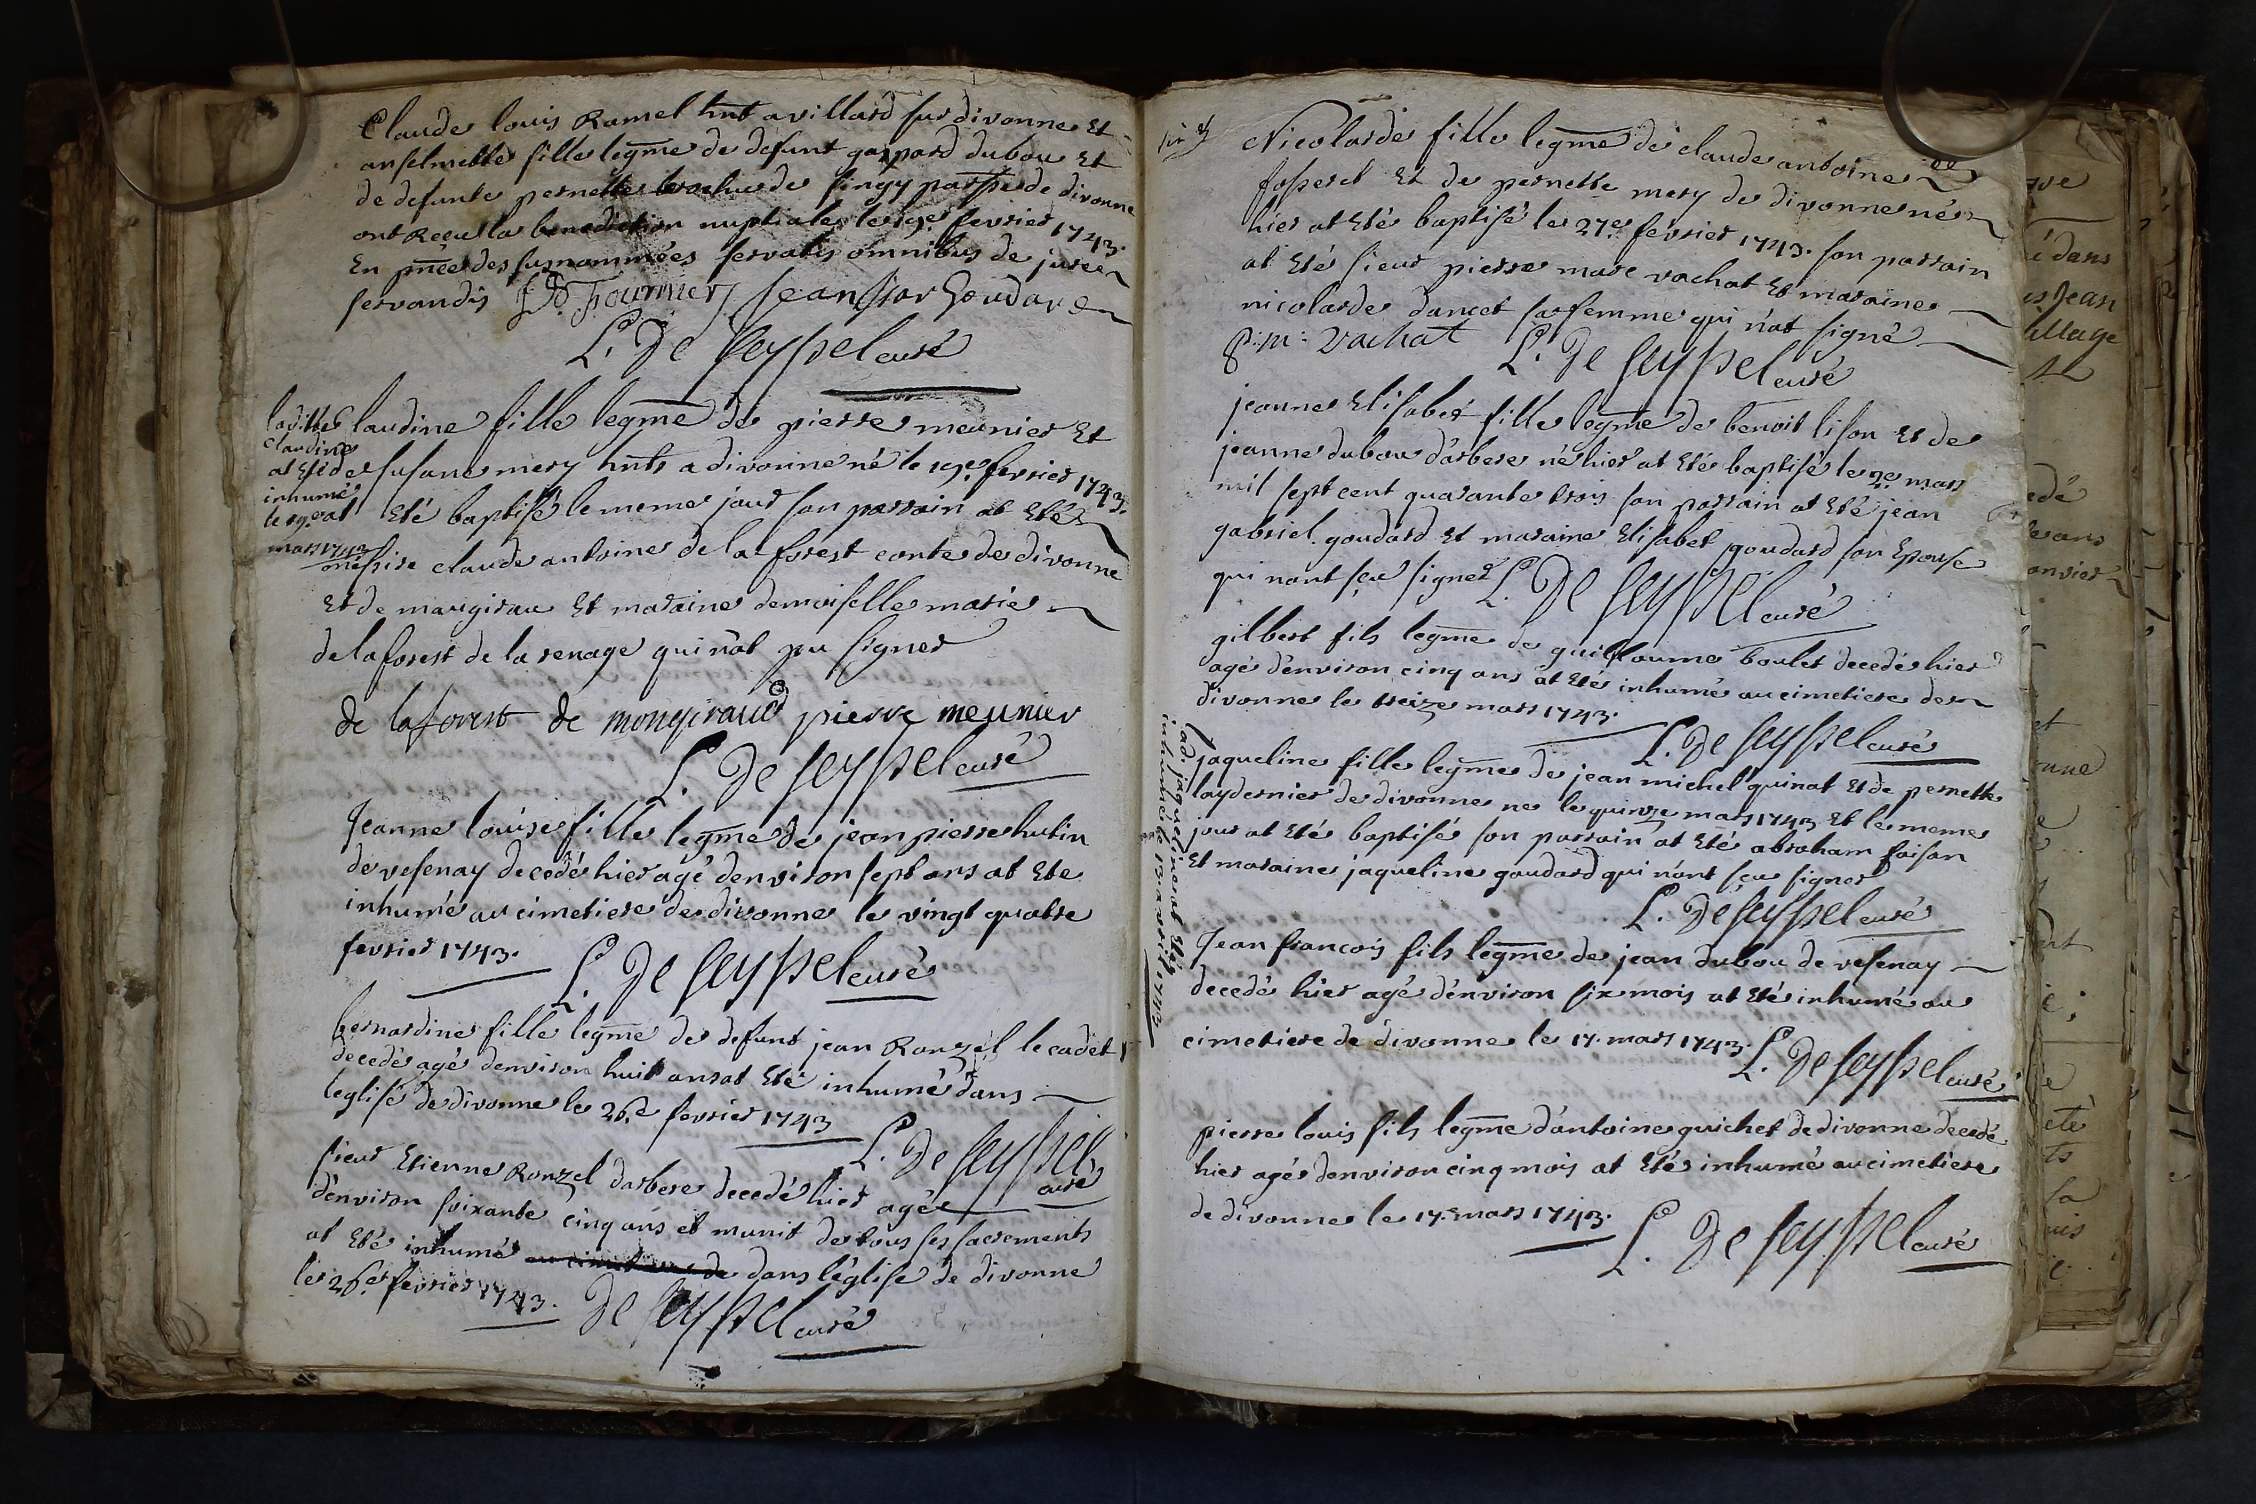 Claude louis Ramel hnt a villard sur divonne Et
anselmette fille legme de defunt gaspard dubou Et
de defunte pernette de singy parsse de divonne
ont Reçeu la benediction nuptiale le 19e fevrier 1743.
En pnce des susnommées servatis omnibus de jure
servandis Fournier jean goudard
L. De seyssel curé
claudine fille legme de pierre meunier Et
de susane mery hnts a divonne né le 19e fevrier 1743.
at Eté baptisé le meme jour son parrain at Eté
mesire claude antoine de la forest conte de divonne
Et de maugirau Et maraine demoiselle marie
de la forest de la renage qui n'at pu signer
de laforest de mongiraud pierre meunier
L. De seyssel curé
ladite
claudine
at Eté
inhumé
le 19e
mars 1743
Jeanne louise fille legme de jean pierre hutin
de vesenay decedé hier agé denviron sept ans at Ete
inhumé au cimetiere de divonne le vingt quatre
fevrier 1743.
L. De seyssel curé
bernardine fille legme de defunt jean Ronzel le cadet
decedé agé denviron huit ans at Eté inhumé dans
leglise de divonne le 26.e fevrier 1743
L. De seyssel
curé
sieur Etienne Ronzel darbere decedé hier agé
d'environ soixante cinq ans et munit de tous ses sacrements
at Eté inhumé au cimetiere de dans léglise de divonne
le 26e fevrier 1743.
De seyssel curé
Nicolarde fille legme de claude antoine
fosseret Et de pernette mery de divonne né
hier at Eté baptisé le 27e fevrier 1743. son parrain
at Eté sieur pierre marc vachat Et maraine
nicolarde dancet sa femme qui n'at signé
p: m: vachat
L. De seyssel curé
jeanne Elisabet fille legme de benoit lison Et de
jeanne dubou d'arbere né hier at Eté baptisé le 2e mars
mil sept cent quarante trois son parrain at Eté jean
gabriel goudard Et maraine Elisabet goudard son Epouse
qui n'ont sçu signer
L. De seyssel curé
gilbert fils legme de guillaume boulet decedé hier
agé d'environ cinq ans at Eté inhumé au cimetiere de
divonne le treize mars 1743.
L. De seyssel curé
jaqueline fille legme de jean michel quinat Et de pernette
laydernier de divonne ne le quinze mars 1743 Et le meme
jour at Eté baptisé son parrain at Eté abraham faisan
Et maraine jaqueline goudard qui n'ont sçu signer
L. De seyssel curé
lad. jaqueline at Eté
inhumé le 13. avril 1743
Jean françois fils legme de jean dubou de vesenay
decedé hier agé d'environ six mois at Eté inhumé au
cimetiere de divonne le 17. mars 1743.
L. De seyssel curé
pierre louis fils legme d'antoine guichet de divonne decedé
hier agé denviron cinq mois at Eté inhumé au cimetiere
de divonne le 17. mars 1743.
L. De seyssel curé